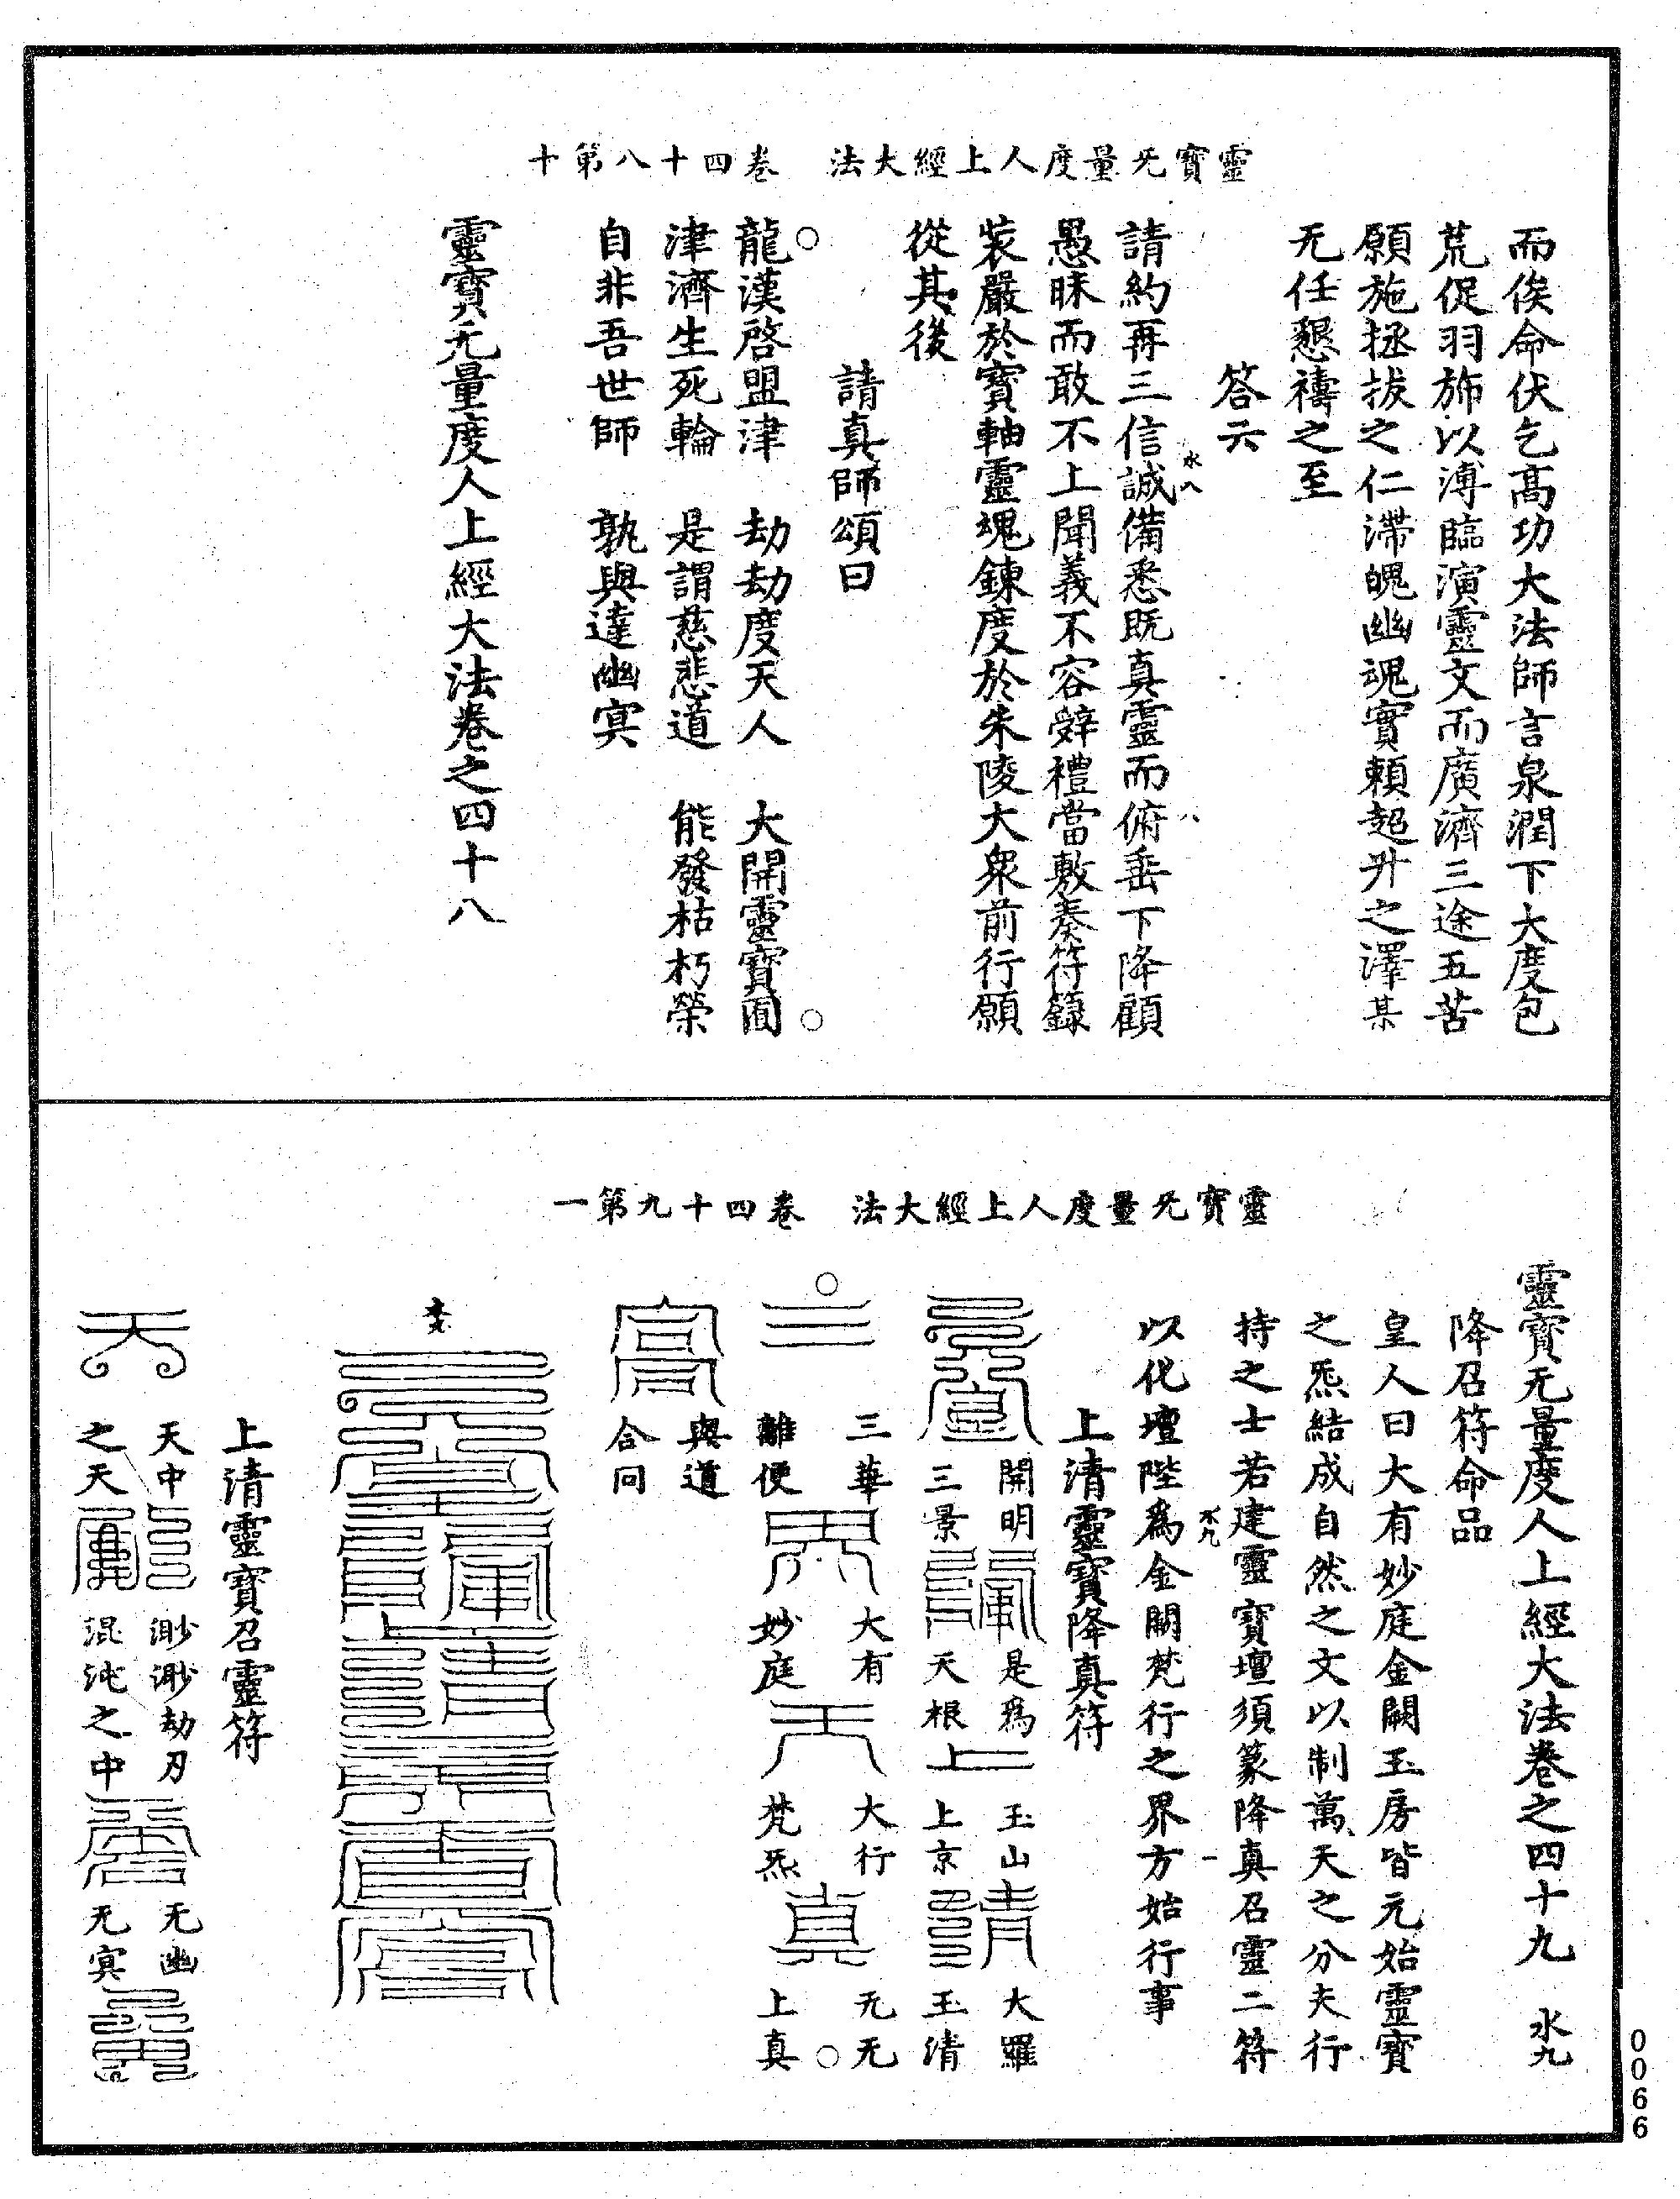 靈寶无量度人上經大法　卷四十八第十
而俟命伏乞高功大法師言泉潤下大度包
荒促羽斾以溥臨演靈文而廣濟三途五苦
願施拯拔之仁滯魄幽魂實賴超昇之澤某
无任懇禱之至
答云
請約再三信誠備悉既真靈而俯垂下降顧
水八
八
愚昧而敢不上聞義不容辭禮當敷奏符籙
裝嚴於寶軸靈魂鍊度於朱陵大衆前行願
從其後
請真師頌曰
龍漢啓盟津　劫劫度天人　大開靈寶囿
津濟生死輪　是謂慈悲道　能發枯朽榮
自非吾世師　孰與達幽冥
靈寶无量度人上經大法卷之四十八
靈寶无量度人上經大法　卷四十九第一
靈寶无量度人上經大法卷之四十九　水九
降召符命品
皇人曰大有妙庭金闕玉房皆元始靈寶
之炁結成自然之文以制萬天之分夫行
持之士若建靈寶壇須篆降真召靈二符
水九
一
以化壇陛爲金闕梵行之界方始行事
上清靈寶降真符
開明　是爲　玉山　大羅
三景　天根　上京　玉清
三華　大有　大行　无无
離便　妙庭　梵炁　上真
與道
合同
水九
上清靈寶召靈符
天中　渺渺劫刃　无幽
之天　混沌之中　无冥
0066